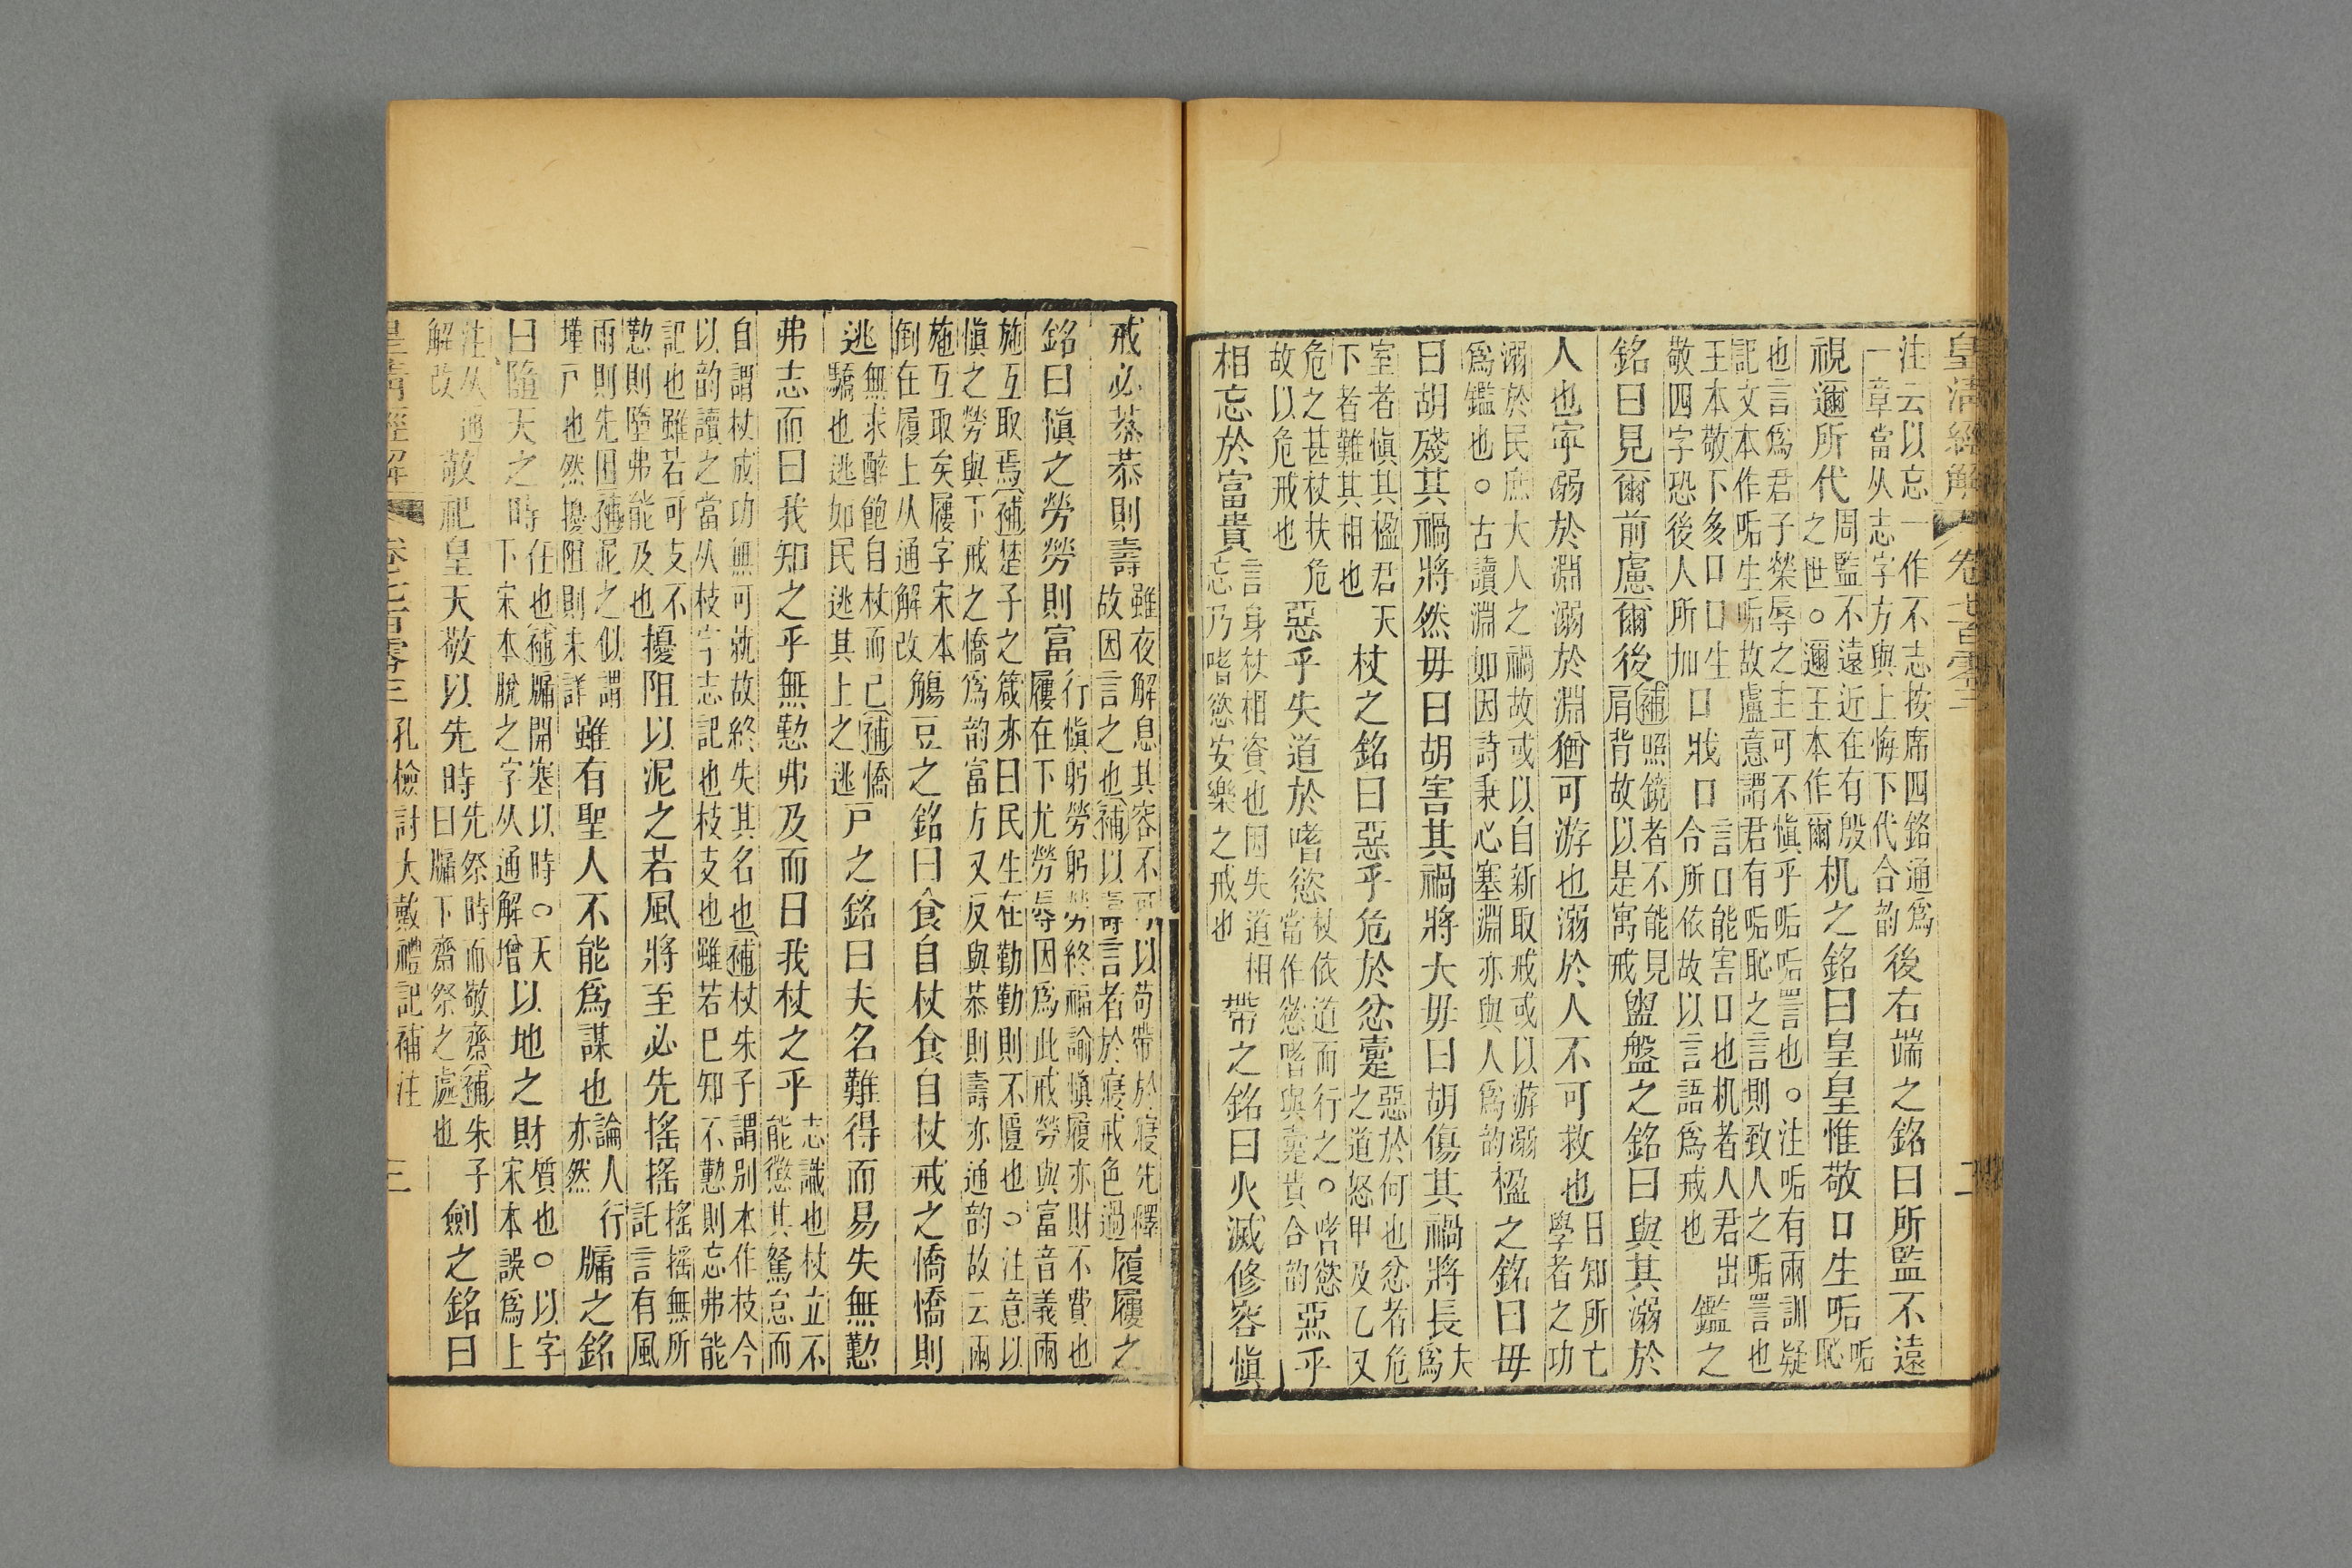 皇清經解 卷七百零三 二
注云以忘一作不志按席四銘通為
一章當从志字方與上悔下代合韵
後右端之銘曰所監不遠
視邇所代
周監不遠近在有殷
之世○邇王本作爾
机之銘曰皇皇惟敬口生㖃
㖃
恥
也言為君子榮辱之主可不慎乎㖃㖃詈也○注㖃有兩訓疑
記文本作㖃生㖃故盧意謂君有㖃恥之言則致人之㖃詈也
王本敬下多口口生
敬四字恐後人所加
口戕口
言口能害口也机者人君出
令所依故以言語為戒也
鑑之
銘曰見爾前慮爾後
補照鏡者不能見
肩背故以是寓戒
盥盤之銘曰與其溺於
人也寜溺於淵溺於淵猶可游也溺於人不可救也
日知所亡
學者之功
溺於民庶大人之禍故或以自新取戒或以游溺
為鑑也○古讀淵如因詩秉心塞淵亦與人為韵
楹之銘曰毋
曰胡殘其禍將然毋曰胡害其禍將大毋曰胡傷其禍將長
夫
為
室者慎其楹君天
下者難其相也
杖之銘曰惡乎危於忿疐
惡於何也忿者危
之道怒甲及乙又
危之甚杖扶危
故以危戒也
惡乎失道於嗜慾
杖依道而行之○嗜慾
當作慾嗜與疐貴合韵
惡乎
相忘於富貴
言身杖相資也因失道相
忘乃嗜慾安樂之戒也
帶之銘曰火滅修容慎
戒必恭恭則壽
雖夜解息其容不可以苟帶於寢先釋
故因言之也補以壽言者於寢戒色過
履屨之
銘曰慎之勞勞則富
行慎躬勞躬勞終福諭慎履亦財不費也
屨在下尤勞辱因為此戒勞與富音義兩
施互取焉補楚子之箴亦曰民生在勤勤則不匱也○注意以
慎之勞與下戒之憍為韵富方又反與恭則壽亦通韵故云兩
施互取矣屨字宋本
倒在履上从通解改
觴豆之銘曰食自杖食自杖戒之憍憍則
逃
無求醉飽自杖而已補憍
驕也逃如民逃其上之逃
戶之銘曰夫名難得而易失無懃
弗志而曰我知之乎無懃弗及而曰我杖之乎
志識也杖立不
能懲其駑怠而
自謂杖成功無可就故終失其名也補杖朱子謂别本作枝今
以韵讀之當从枝字志記也枝支也雖若已知不懃則忘弗能
記也雖若可支不
懃則墮弗能及也
擾阻以泥之若風將至必先搖搖
搖搖無所
託言有風
雨則先困補泥之似謂
墐戸也然擾阻則未詳
雖有聖人不能為謀也
論人行
亦然
牖之銘
曰隨天之時
在也補牖開塞以時○天
下宋本脫之字从通解增
以地之財
質也○以字
宋本誤為上
注从通
解改
敬祀皇天敬以先時
先祭時而敬齋補朱子
曰牖下齋祭之處也
劍之銘曰
皇清經解 卷七百零三 孔檢討大戴禮記補注 三